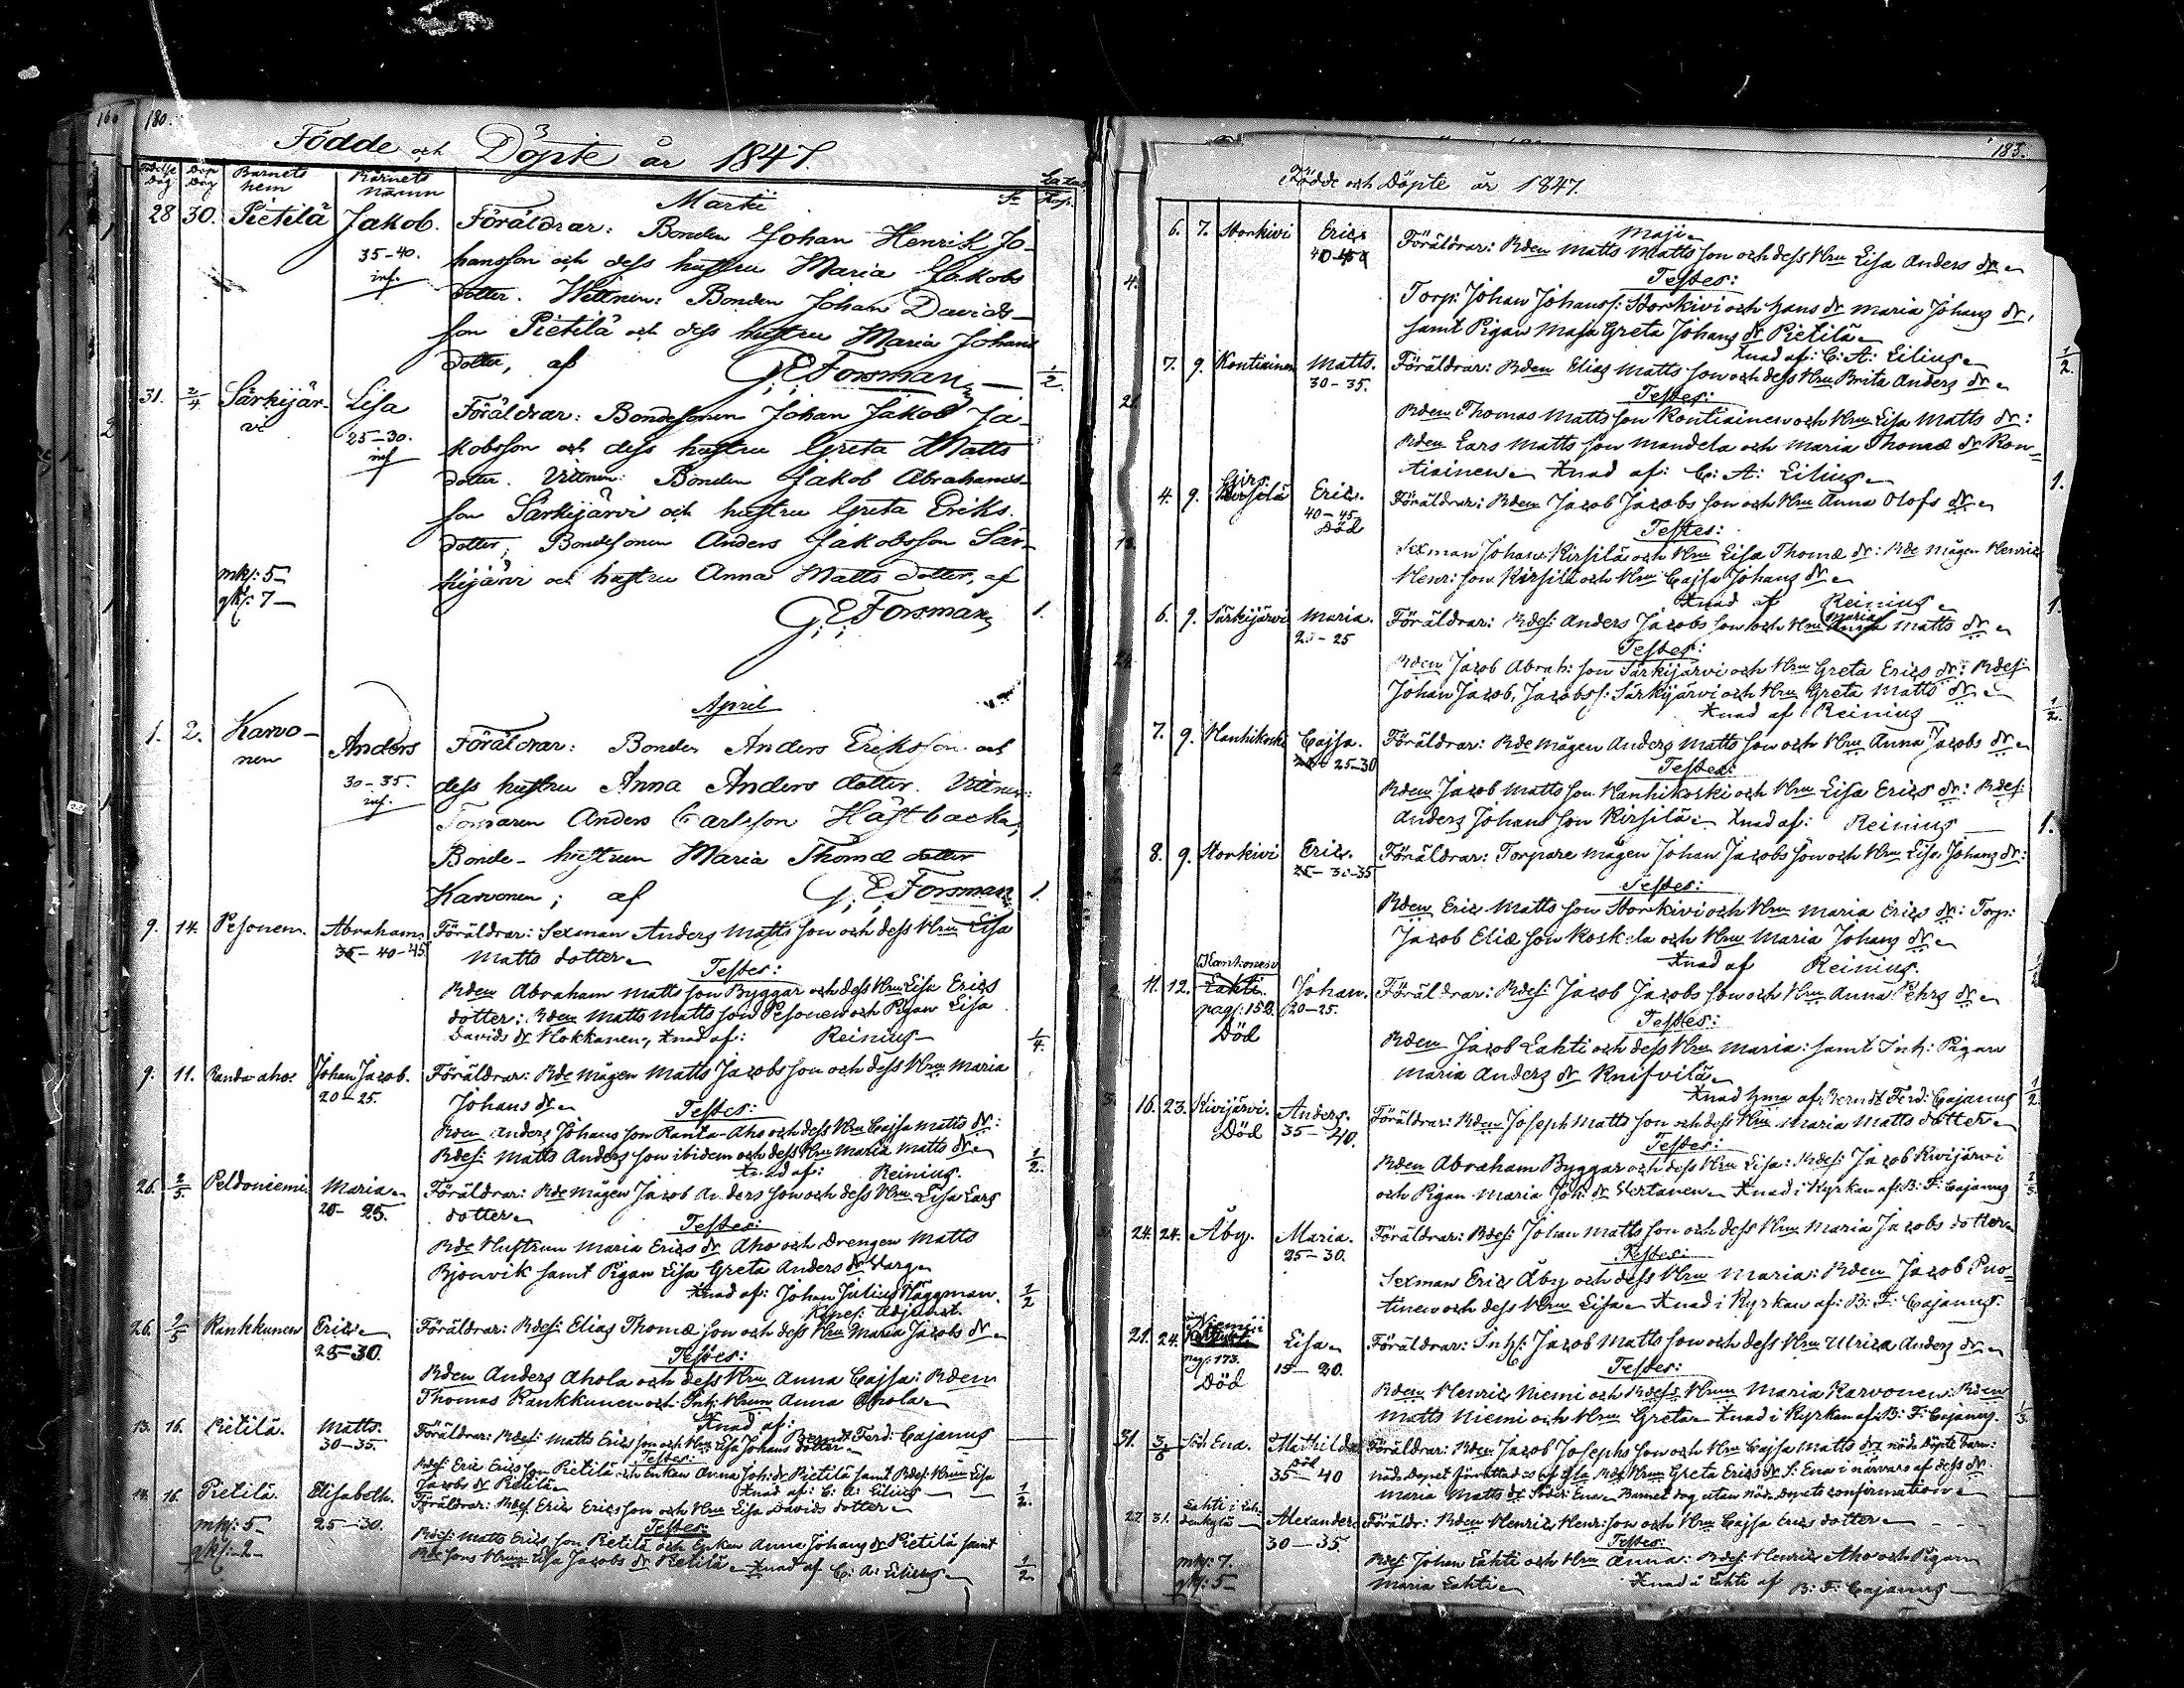 160
180.
Födde och Döpte år 1847.
Födelse Dag
Dop Dag
Barnets hem
Barnets namn
Martii
28 30. Pietilä Jakob. Föräldrar: Bonden Johan Henrik Jo-
35-40. hansson och dess hustru Maria Jakobs
inf. dotter. Vittnen: Bonden Johan Davids-
son Pietilä och dess hustru Maria Johans
dotter, af G. E. Forsman 1/2.
31. 2/4 Särkijär- Lisa Föräldrar: Bondesonen Johan Jakob Ja-
vi 25-30. kobsson och dess hustru Greta Matts
inf dotter. Vittnen: Bonden Jakob Abrahams-
son Särkijärvi och hustru Greta Eriks
dotter, Bondesonen Anders Jakobsson Sär-
mkj: 5- kijärvi och hustru Anna Matts dotter, af
qkj: 7- G. E. Forsman 1.
April
1. 2. Karvo- Anders Föräldrar: Bonden Anders Eriksson och
nen 30-35. dess hustru Anna Anders dotter. Vittnen:
inf. Torparen Anders Carlsson Hästbacka,
Bonde-hustrun Maria Thomæ dotter
Karvonen; af G. E. Forsman 1.
9. 14. Pesonen. Abraham. Föräldrar: Sexman Anders Matts son och dess Hru Lisa
35-40-45. Matts dotter
Testes:
Bden Abraham Matts son Byggar och dess Hru Lisa Erics
dotter: Bden Matts Matts son Pesonen och Pigan Lisa
Davids dr Hokkanen, Xnad af: Reinius 1/4.
9. 11. Randa aho. Johan Jacob. Föräldrar: Bde mågen Matts Jacobs son och dess Hru Maria
20-25. Johans dr
Testes:
Bden Anders Johans son Ranta-Aho och dess Hru Cajsa Matts dr:
Bdes: Matts Anders son ibidem och dess Hru Maria Matts dr
Xnad af: Reinius. 1/2.
26. 2/5. Peldoniemi. Maria Föräldrar: Bde mågen Jacob Anders son och dess Hru Lisa Lars
20-25. dotter
Testes:
Bde Hustrun Maria Erics dr Aho och Drengen Matts
Bjönvik samt Pigan Lisa Greta Anders dr Varg
Xnad af: Johan Julius Häggman. 1/2
Kpnes: Adjunct.
26. 2/5 Kankkunen Eric Föräldrar: Bdes: Elias Thomæ son och dess Hru Maria Jacobs dr
25-30. Testes:
Bden Anders Ahola och dess Hru Anna Cajsa: Bden
Thomas Kankkunen och Inh: Hrun Anna Ahola
Xnad af: Berndt Ferd: Cajanus
13. 16. Pietilä. Matts. Föräldrar: Bdes: Matts Erics son och Hru Lisa Johans dotter
30-35. Testes:
Bdes: Eric Erics son Pietilä och Enkan Anna Joh: dr Pietilä samt Bdes: Hrun Lisa
Jacobs dr Pietilä Xnad af: C: A: Eilius 1/2.
14. 16. Pietilä. Elisabeth. Föräldrar: Bdes Eric Erics son och Hru Lisa Davids dotter
mkj: 5- 25-30. Testes:
qkj: -2- Bdes: Matts Erics son Pietilä och Enkan Anna Johans dr Pietilä samt
Bde sons Hrun Lisa Jacobs dr Pietilä Xnad af C: A: Eilius 1/2
183.
Födde och Döpte år 1847.
Maji
6. 7. Storkivi Eric Föräldrar: Bden Matts Matts son och dess Hru Lisa Anders dr
Testes:
Torp: Johan Johanss: Storkivi och hans dr Maria Johans dr,
samt Pigan Maja Greta Johans dr Pietilä
Xnad af: C: A: Eilius 1/2.
7. 9. Kontiainen Matts. Föräldrar: Bden Elias Matts son och dess Hru Brita Anders dr
30-35. Testes:
Bden Thomas Matts son Kontiainen och Hru Lisa Matts dr:
Bden Lars Matts son Mandela och Maria Thomæ dr Kon-
tiainen Xnad af: C: A: Eilius 1.
4. 9. Kirsilä Eric. Föräldrar: Bden Jacob Jacobs son och Hru Anna Olofs dr
40-45. Testes:
Död
Sexman Johan Kirsilä och Hru Lisa Thomæ dr: Bde mågen Henric
Henr: son Kirsilä och Hru Cajsa Johans dr
Xnad af Reinius 1.
6. 9. Särkijärvi Maria. Föräldrar: Bdes: Anders Jacobs son och Hru Maria Matts dr
20-25 Testes:
Bden Jacob Abrah: son Särkijärvi och Hru Greta Erics dr: Bdes:
Johan Jacob, Jacobss: Särkijärvi och Hru Greta Matts dr
Xnad af Reinius 1/2.
7. 9. Hanhikoski Cajsa. Föräldrar: Bde mågen Anders Matts son och Hru Anna Jacobs dr
25-30 Testes:
Bden Jacob Matts son Hanhikoski och Hru Lisa Erics dr: Bdes:
Anders Johans son Kirsilä Xnad af: Reinius 1.
8. 9. Storkivi Eric. Föräldrar: Torpare mågen Johan Jacobs son och Hru Lisa Johans dr:
25-30-35 Testes:
Bden Eric Matts son Storkivi och Hru Maria Erics dr: Torp:
Jacob Eliæ son Koskela och Hru Maria Johans dr
Xnad af Reinius.
11. 12. Lahti. Johan. Föräldrar: Bdes: Jacob Jacobs son och Hru Anna Pehrs dr
pag: 152. 20-25. Testes:
Död Bden Jacob Lahti och dess Hru Maria: samt Inh: Pigan
Maria Anders dr Knifvilä
Xnad hma af: Berndt Ferd: Cajanus 1/2
16. 23. Kivijärvi. Anders. Föräldrar: Bden Joseph Matts son och dess Hru Maria Matts dotter
Död 35-40. Testes:
Bden Abraham Byggar och dess Hru Lisa: Bdes: Jacob Kivijärvi
och Pigan Maria Joh: dr Hertanen Xnad i Kyrkan af: B: F: Cajanus
24. 24. Åby. Maria. Föräldrar: Bdes: Johan Matts son och dess Hru Maria Jacobs dotter
25-30. Testes:
Sexman Eric Åby och dess Hru Maria: Bden Jacob Puo-
tinen och dess Hru Lisa Xnad i Kyrkan af: B: F: Cajanus.
21. 24. Niemi Lisa Föräldrar: Inh: Jacob Matts son och dess Hru Ulrica Anders dr
pag: 173. 15-20. Testes:
Död Bden Henric Niemi och Bdess Hrun Maria Karvonen: Bden
Matts Niemi och Hru Greta Xnad i Kyrkan af: B: F: Cajanus. 1/3
31. 3/6 Söd: Ena. Mathilda Föräldrar: Bden Jacob Josephs son och Hru Cajsa Matts drs nöd-Döpte barn:
Död nöd-Dopet förrättades af Bds Hrun Greta Erics dr S: Ena i närvaro af dess dr
35-40 Maria Matts dr Söder: Ena Barnet dog utan nöd-Dopets confirmation
27. 31. Lahti Alexander Föräldr: Bden Henric Henr: son och Hru Cajsa Erics dotter
30-35. Testes:
mkj: 7. Bdes: Johan Lahti och Hru Anna: Bdes: Henric Aho och Pigan
qkj: 5- Maria Lahti Xnad i Lahti af B: F: Cajanus